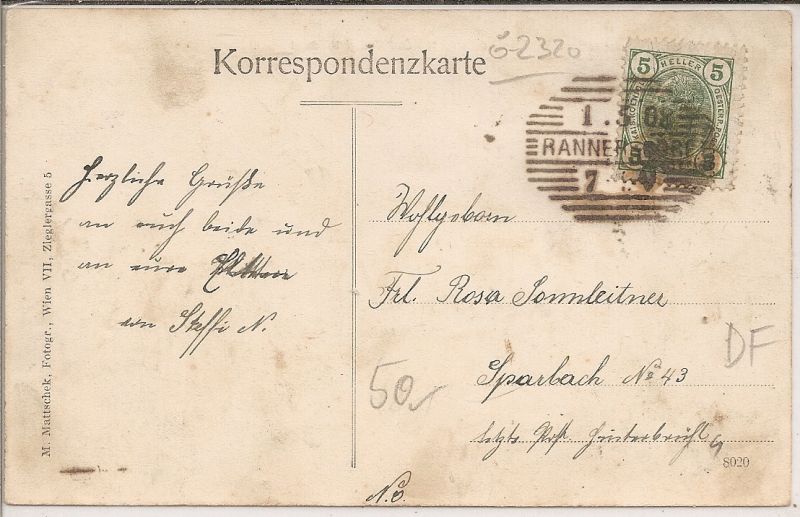 Korrespondenzkarte
ö-2320
5 HELLER 5
1.5 08
RANNERSDORF
7
5 5
M. Mattschek, Fotogr., Wien VII, Zieglergasse 5
Herzliche Grüße
an euch beide und
an eure
von Steffi N.
Wohlgeborn
Frl. Rosa Sonnleitner
Sparbach No 43
letzte Post Hinterbrühl
N.Ö.
50
DF
8020